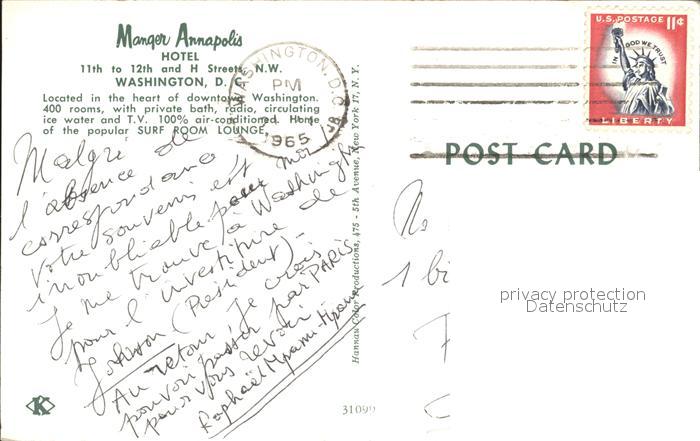 Manger Annapolis
HOTEL
11th to 12th and H Streets, N.W.
WASHINGTON, D. C.
Located in the heart of downtown Washington.
400 rooms, with private bath, radio, circulating
ice water and T.V. 100% air-conditioned. Home
of the popular SURF ROOM LOUNGE.
WASHINGTON, D.C.
PM
1965
U.S. POSTAGE 11¢
IN GOD WE TRUST
LIBERTY
POST CARD
Malgré de
l'absence de
correspondance
votre souvenir est
inoubliable pour moi
Je me trouve à Washington
pour l'investiture de
Johnson (Président) -
Au retour, je crois
pouvoir passer par PARIS
pour vous revoir
Raphaël
Hannau Color Productions, 475 - 5th Avenue, New York 17, N. Y.
K
31099
privacy protection
Datenschutz